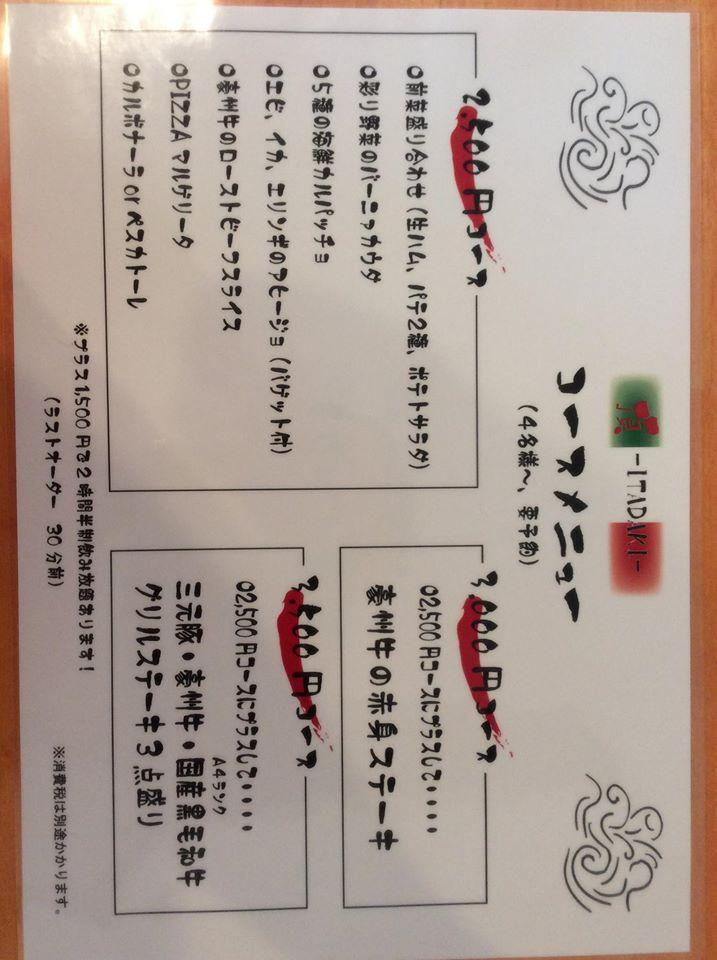 頂 -ITADAKI-
コースメニュー
(4名様〜、要予約)
2,500円コース
○前菜盛り合わせ(生ハム、パテ2種、ポテトサラダ)
○彩り野菜のバーニャカウダ
○5種の海鮮カルパッチョ
○エビ、イカ、エリンギのアヒージョ(バゲット付)
○豪州牛のローストビーフスライス
○PIZZA マルゲリータ
○カルボナーラorペスカトーレ
3,000円コース
○2,500円コースにプラスして・・・・
豪州牛の赤身ステーキ
3,500円コース
○2,500円コースにプラスして・・・・
A4ランク
三元豚・豪州牛・国産黒毛和牛
グリルステーキ3点盛り
※プラス1,500円で2時間半制飲み放題あります!
(ラストオーダー 30分前)
※消費税は別途かかります。